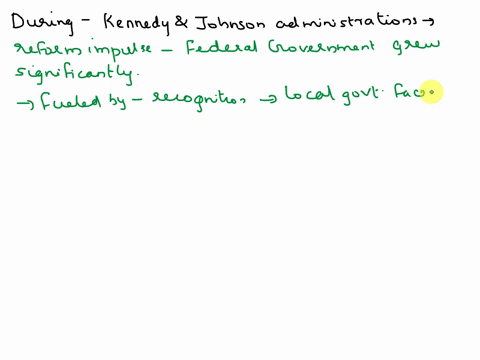 During - Kennedy & Johnson administrations →
reform impulse - Federal Government grew
significantly.
→ Fueled by - recognition → Local govt. fac